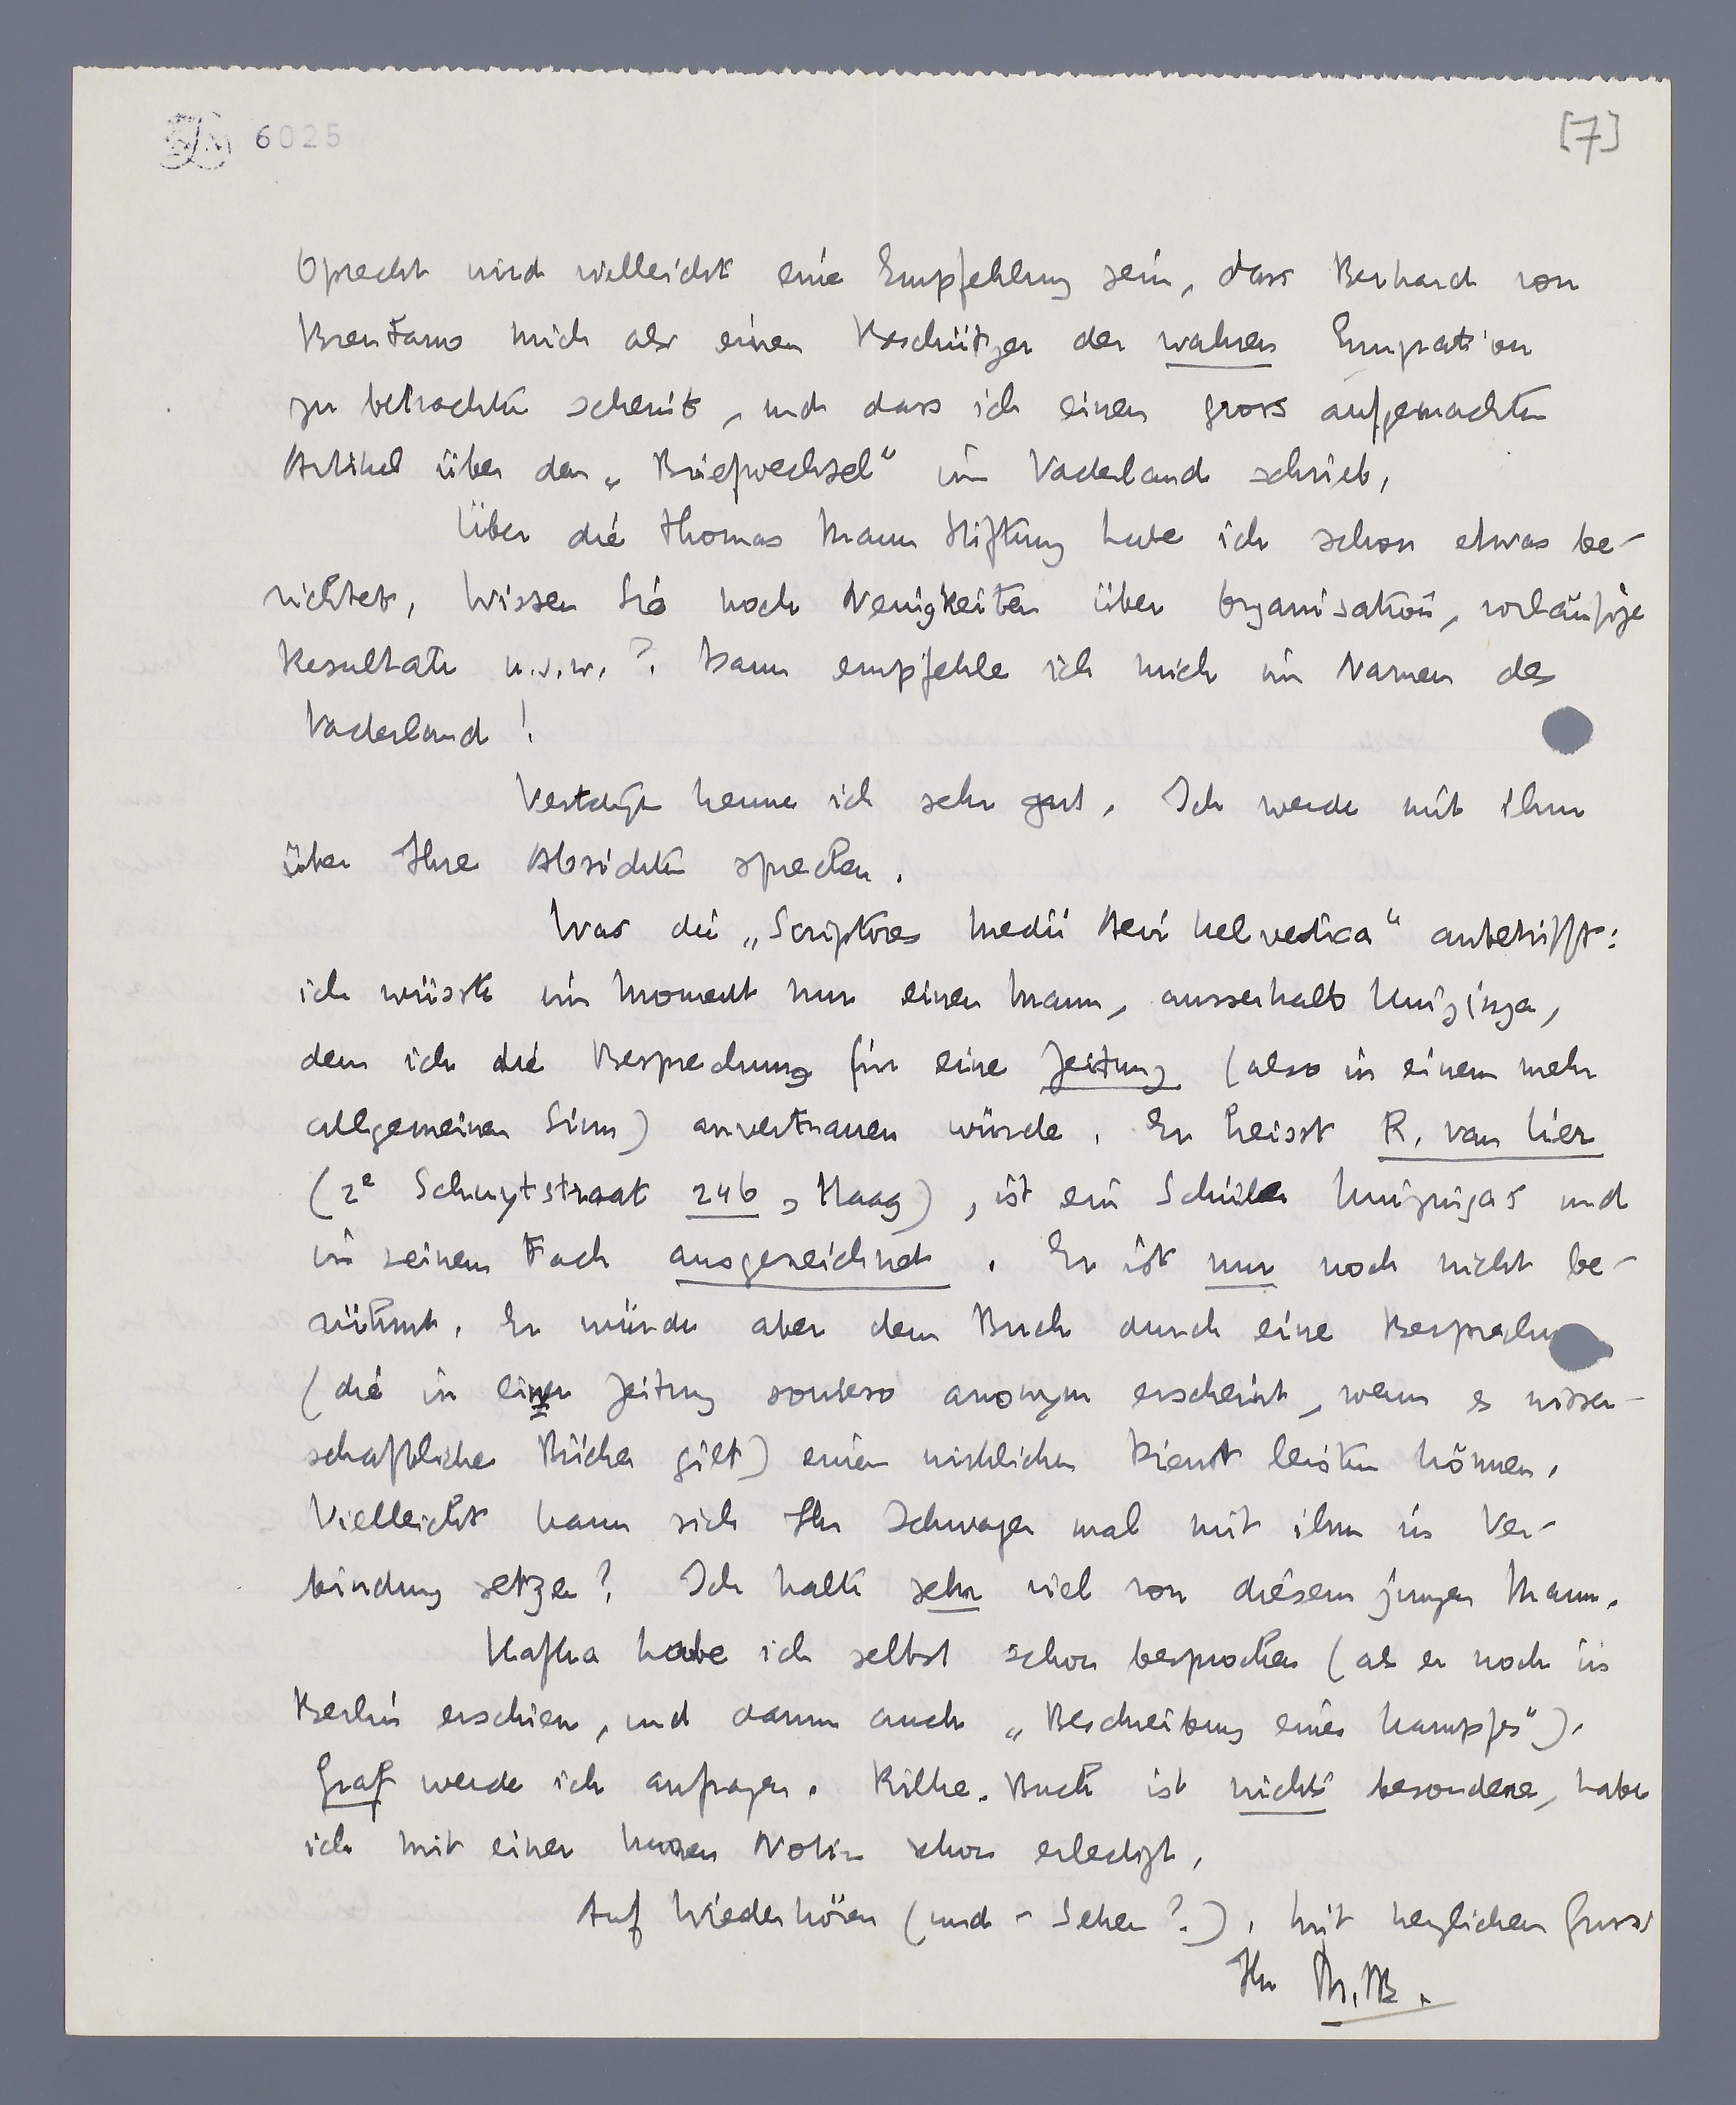 6025
[7]
Oprecht wird vielleicht eine Empfehlung sein, dass Berhard von
Brentano mich als einen Beschützer der wahren Emigration
zu betrachten scheint, und dass ich einen gross aufgemachten
Artikel über den „Briefwechsel" im Vaderland schrieb.
Über die Thomas Mann Stiftung habe ich schon etwas be-
richtet. Wissen Sie noch Neuigkeiten über Organisation, vorläufige
Resultate u.s.w.? Dann empfehle ich mich im Namen des
Vaderland!
Vestdijk kenne ich sehr gut. Ich werde mit ihm
über Ihre Absichten sprechen.
Was die „Scriptores Medii Aevi helvetica" anbetrifft:
ich wüsste im Moment nur einen Mann, ausserhalb Huizinga,
dem ich die Besprechung für eine Zeitung (also in einem mehr
allgemeinen Sinn) anvertrauen würde. Er heisst R. van Lier
(2e Schuytstraat 246, Haag), ist ein Schüler Huizingas und
in seinem Fach ausgezeichnet. Er ist nur noch nicht be-
rühmt. Er würde aber dem Buch durch eine Besprechung
(die in einer Zeitung sowieso anonym erscheint, wenn es wissen-
schaftliche Bücher gilt) einen wirklichen Dienst leisten können.
Vielleicht kann sich Ihr Schwager mal mit ihm in Ver-
bindung setzen? Ich halte sehr viel von diesem jungen Mann.
Kafka habe ich selbst schon besprochen (als er noch in
Berlin erschien, und dann auch „Beschreibung eines Kampfes").
Graf werde ich anfragen. Rilke-Buch ist nichts besonderes, habe
ich mit einer kurzen Notiz schon erledigt.
Auf Wiederhören (und - Sehen?). Mit herzlichem Gruss
Ihr M.t.B.